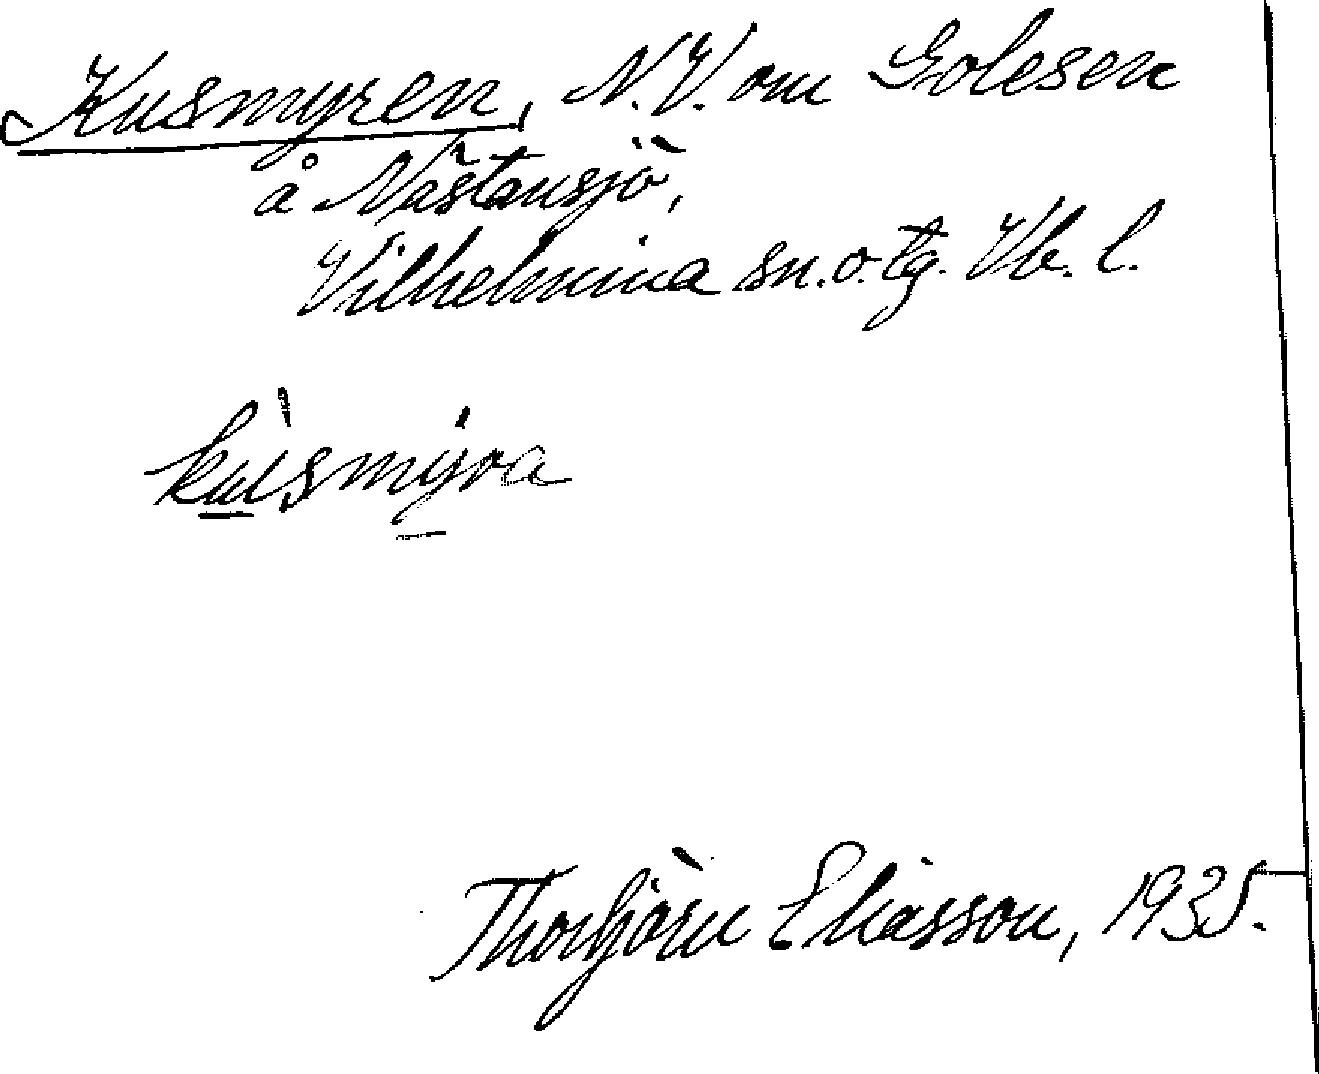 Kusmyren, N.V. om Golesen
å Nästansjö,
Vilhelmina sn. o. tg. Vb. l.
kusmyra
Thorbjörn Eliasson, 1935.